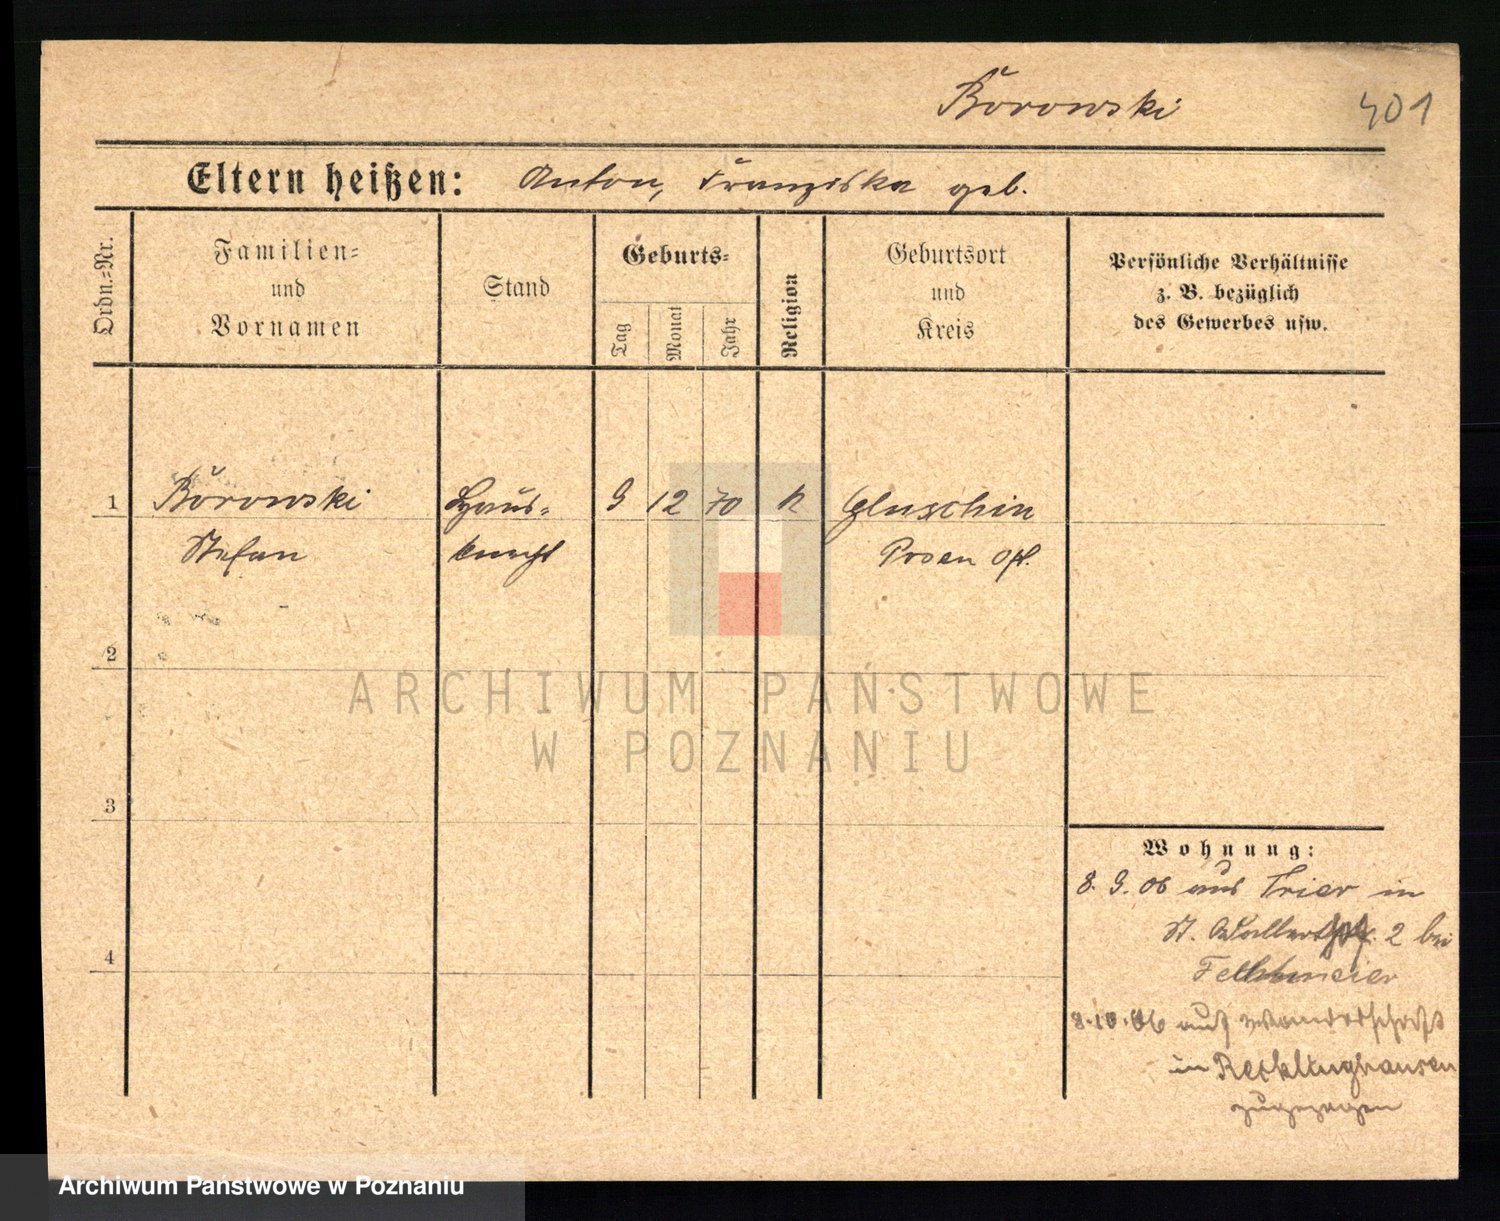 Borowski 401
Eltern heißen: Anton, Franziska geb.
Ordn.=Nr.
Familien=
und
Vornamen
Stand
Geburts=
Tag
Monat
Jahr
Religion
Geburtsort
und
Kreis
Persönliche Verhältnisse
z. B. bezüglich
des Gewerbes usw.
1 Borowski Haus- 9 12 70 K Gluschin
Stefan knecht Posen Ost.
2
3
4
Wohnung:
8. 9. 06 aus Trier in
St. 2 bei
8.10.06 auf Wanderschaft
in Recklinghausen
zugezogen
ARCHIWUM PAŃSTWOWE
W POZNANIU
Archiwum Państwowe w Poznaniu